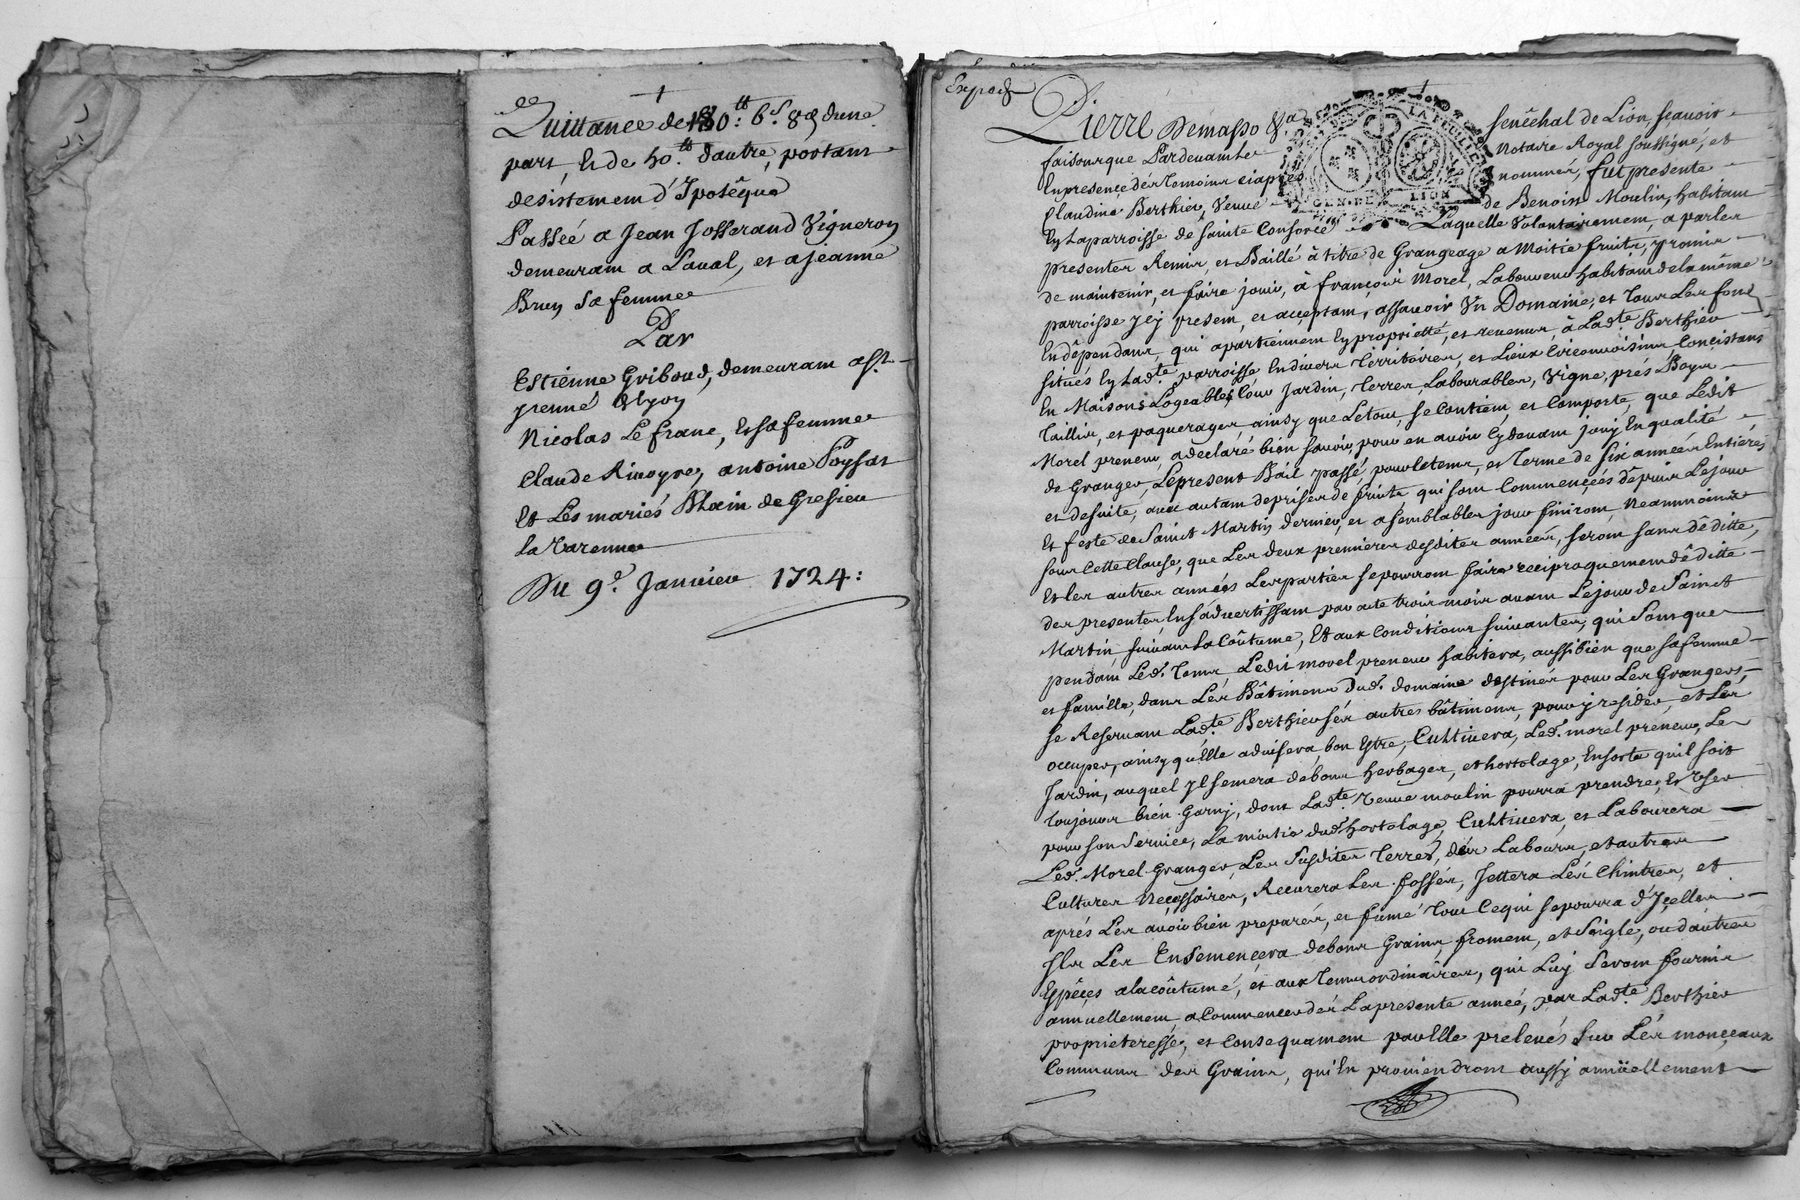 Quittance de 180.tt 6.s 8.d d'une
part, Et de 40.tt d'autre, portant
desistement d'Ipotêque
Passeé a Jean Josserand Vigneron
demeurant a Laual, et a jeanne
Brun sa femme
Par
Estienne Griboud, demeurant
Nicolas Lefranc, Et sa femme
Claude Rivoyre, antoine Poysat
Et Les mariés Blain de Gresieu
la Varenne
Du 9.e Janvier 1724:
Expedé
Pierre Demasso &a senêchal de Lion, scauoir
faisons que Pardeuant le Notaire Royal soussigné, et
En presence dés Temoins ciaprés nommés, fut presente
Claudine Berthier, Veuue de Benoist Moulin, habitant
En Laparroisse de sainte Consorce Laquelle Volontairement, a par les
presentes Remis, et Baillé à titre de Grangeage a Moitié fruits, promis
de maintenir, et faire jouir, à françois Morel, Laboureur habitant de la même
parroisse jcy present, et acceptant, assauoir Un Domaine, et Tous Les fonds
En dêpendans, qui apartiennent En proprieté, et reuenus à Lad.te Berthier
situés En Lad.te parroisse En diuers Territoires, et Lieux Circonuoisins Concistans
En Maisons Logeables Cour Jardin, Terres Labourables, Vigne, prés Boys
Taillis, et paquerages, ainsy que Letout se Contient, et Comporte, que Ledit
Morel preneur, a declaré bien sauoir, pour en auoir Cydeuant jouy En qualité
de Granger, Lepresent Bail passé pour le tems, et Terme de six années Entiéres
et de suite, aux autant de prises de fruits qui sont Commenceés depuis Lejour
Et feste de Saint Martin dernier, et a semblables jour finiront, Neanmoins
sous Cette Clause, que Les deux premiéres desdites années, seront sans dêditte,
Et les autres années Les parties se pourront faire reciproquement dêditte
des presentes En s'aduertissant par acte trois mois auant Lejour de Saint
Martin, suiuant La Coûtume, Et aux Conditions suiuantes, qui sont que
pendant Led. Tems Ledit morel preneur habitera, aussi bien que sa femme
et famille, dans Les Bâtimens Dud. domaine destinés pour Les Grangers
se Reseruant Lad.te Berthier sés autres bâtimens, pour y resider, et Lés
occuper, ainsy qu'Elle aduisera bon Estre, Cultiuera, Led. morel preneur, Le
Jardin, auquel jl semera de bons herbages, et hortolage, En sorte qu'il soit
toujours bien Garny, dont Lad.te Veuue moulin pourra prendre, Et user
pour son Seruice, La moitié dud. hortolage, Cultiuera, et Labourera
Led. Morel Granger, Les Susdites Terres, dés Labours, et autres
Cultures Necessaires, Recurera Les fossés, Jettera Lés Chintres, et
aprés Les auoir bien preparés, et fumé Tout Cequi se pourra d'Jcelles
jl Les Ensemençera de bons Grains froment, et Seigle, ou d'autres
Espêces a la coûtume, et aux Tems ordinaires, qui Luy Seront fournis
annuellement, a Commencer dés La presente année, par Lad.te Berthier
proprieteresse, et Consequament par Elle preleués sur Lés monçeaux
Communs des Grains, qui En prouiendront aussy annüellement